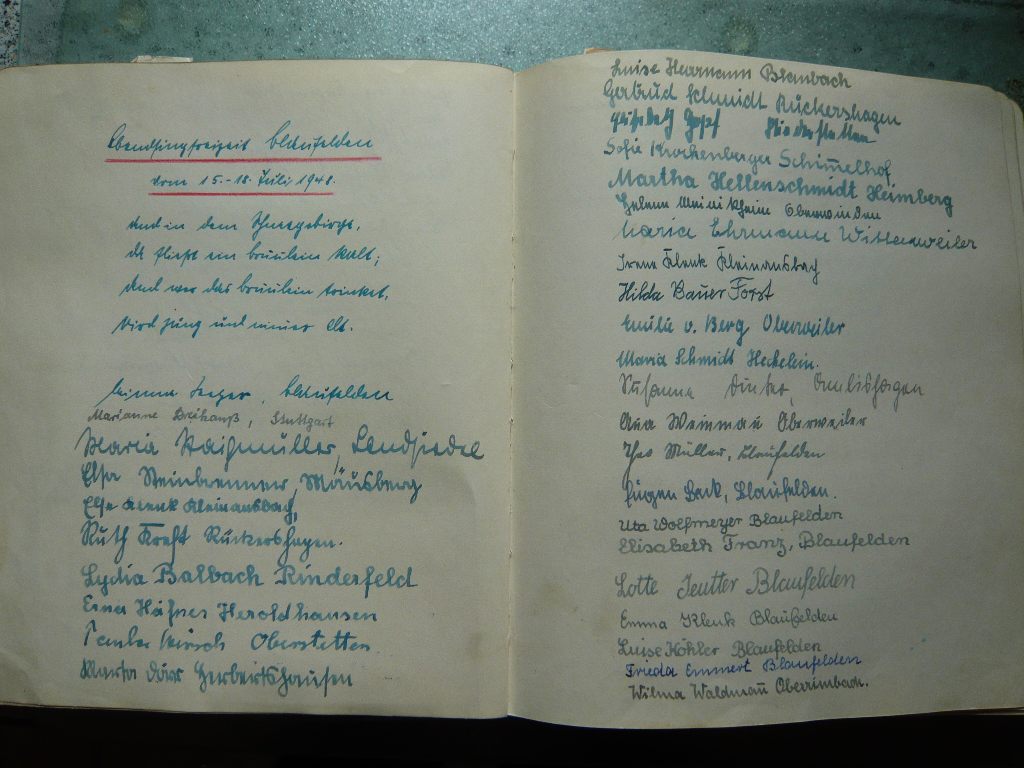 Abendsingfreizeit Blaufelden
vom 15.-18. Juli 1948.
Und in dem Schneegebirge,
da fließt ein Brünnlein kalt;
und wer das Brünnlein trinket,
wird jung und nimmer alt.
Seeger, Blaufelden
Marianne Breihauß, Stuttgart
Maria Waizmüller, Lendsiedel
Elsa Steinbrenner, Mäusberg
Else Klenk Kleinansbach,
Ruth Kreft Rückershagen.
Lydia Balbach Rinderfeld
Erna Häfner Heroldhausen
Kirsch Oberstetten
Marta Dörr Gerbertshausen
Luise Herrmann Blaubach
Gertrud Schmidt Rückershagen
Elisabeth Hopf Niederstetten
Sofie Krockenberger Schimelhof
Martha Hellenschmidt Heimberg
Helene Meinikheim Oberwinden
Maria Ehrmann Wittenweiler
Irene Klenk Kleinansbach
Hilda Bauer Forst
Emilie v. Berg Oberweiler
Maria Schmidt Heckelein.
Susanna
Ana Weinmañ Oberweiler
Müller, Blaufelden
Eugen Sack, Blaufelden.
Uta Wolfmeyer Blaufelden
Elisabeth Franz, Blaufelden
Lotte Jeutter Blaufelden
Emma Klenk Blaufelden
Luise Köhler Blaufelden
Frieda Emmert Blaufelden
Wilma Waldmañ Oberrimbach.